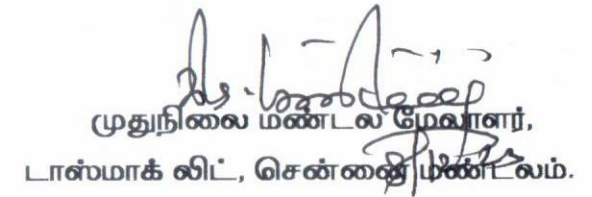 முதுநிலை மண்டல மேலாளர்,
டாஸ்மாக் லிட், சென்னை மண்டலம்.